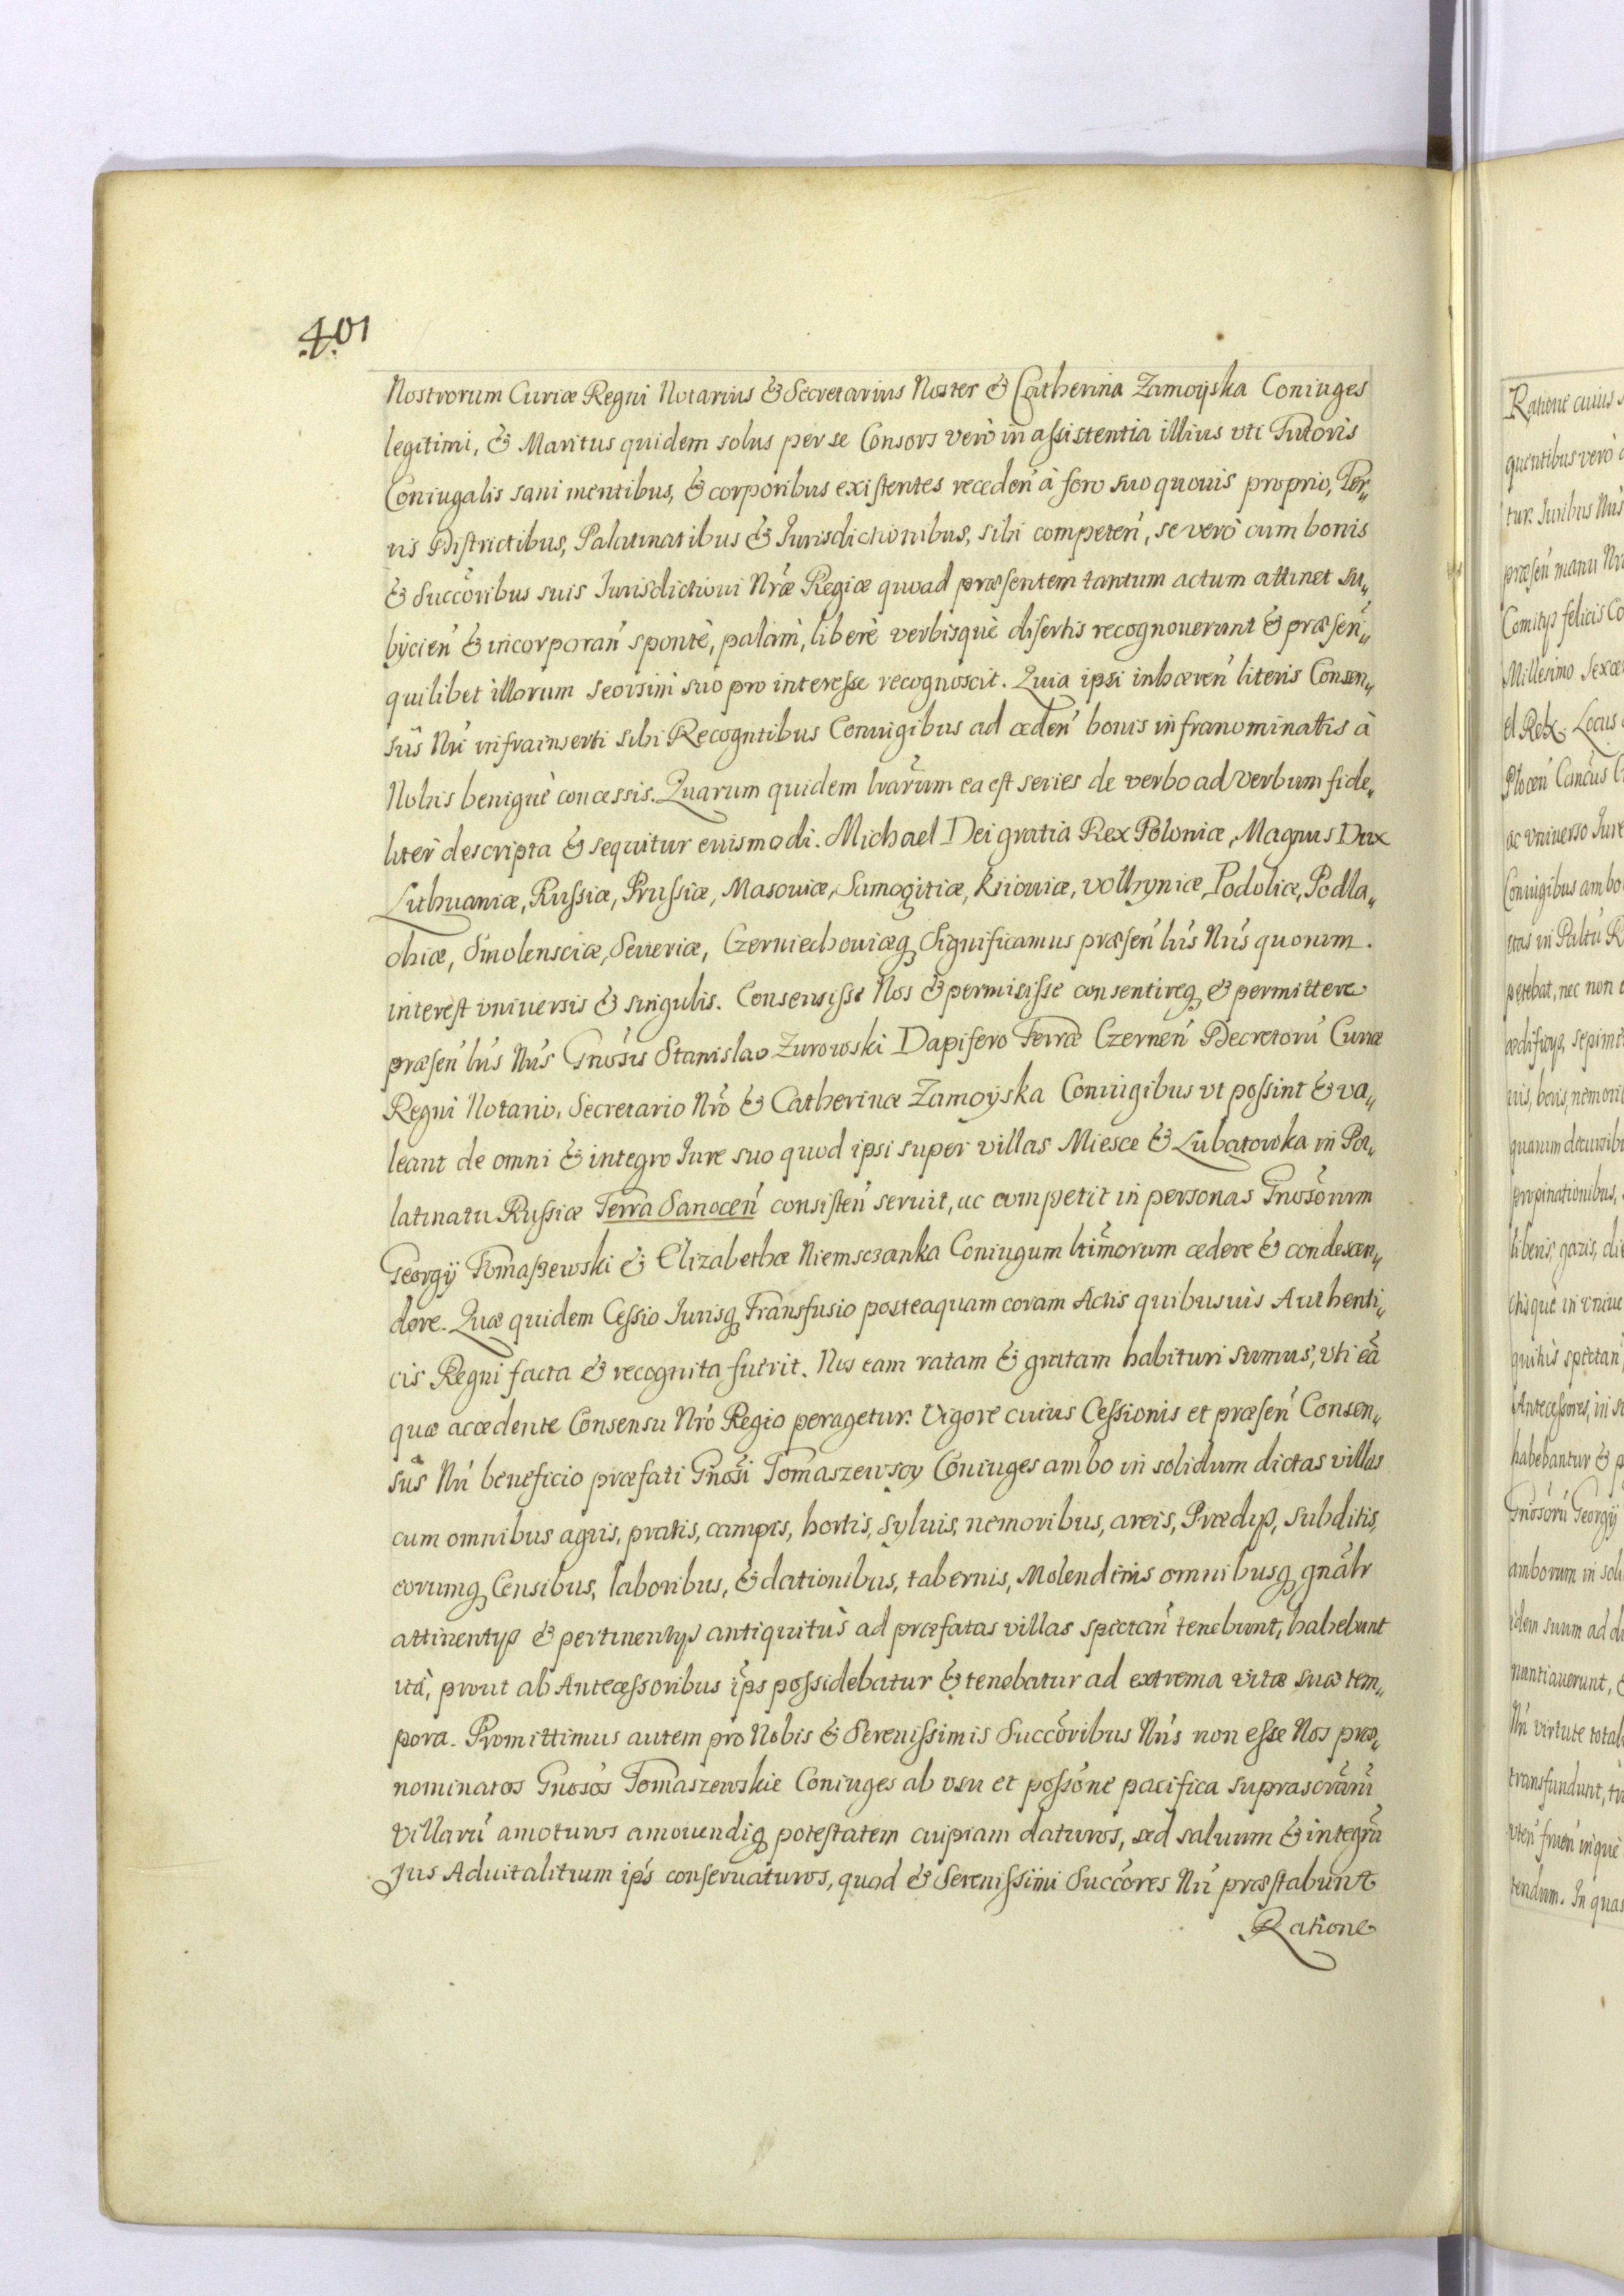 401
Nostrorum Curiæ Regni Notarius & Secretarius Noster & Catherina Zamoÿska Coniuges
legitimi, & Maritus quidem solus per se Consors verò in assistentia illius vti Tutoris
Coniugalis sani mentibus, & corporibus existentes receden̄ à foro suo quovis proprio, Ter„
ris Districtibus, Palatinatibus & Iurisdictionibus, sibi competen̄, se verò cum bonis
& Succōribus suis Iurisdictioni Nr̄æ Regiæ quoad præsentem tantum actum attinet su„
bÿcien̄ & incorporan̄ spontè, palàm, liberè verbisquè disertis recognouerunt & præsen̄„
quilibet illorum seorsim suo pro interesse recognoscit. Quia ipsi inhæren̄ literis Consen„
sûs Nr̄i infrainserti sibi Recogntibus Coniugibus ad cæden̄ bonis infranominatis à
Nobis benignè concessis. Quarum quidem lrārum ea est series de verbo ad verbum fide„
liter descripta & sequitur euismodi. Michael Dei gratia Rex Poloniæ, Magnus Dux
Lithuaniæ, Russiæ, Prussiæ, Masouiæ, Samogitiæ, Kiiouiæ, volhyniæ, Podoliæ, Podla„
chiæ, Smolensciæ, Seueriæ, Czerniechouiæq̨ Significamus præsen̄ lr̄is Nr̄is quorum.
interest vniuersis & singulis. Consensisse Nos & permisisse consentireq̨ & permittere
præsen̄ lr̄is Nr̄is Gnōsis Stanislao Zurowski Dapifero Terræ Czernen̄ Decretorū Curiæ
Regni Notario, Secretario Nr̄o & Catherinæ Zamoÿska Coniugibus vt possint & va„
leant de omni & integro Iure suo quod ipsi super villas Miesce & Lubatowka in Pa„
latinatu Russiæ Terra Sanocen̄ consisten̄ seruit, ac competit in personas Gnosōrum
Georgÿ Tomaszewski & Elizabethæ Niemsczanka Coniugum ltīmorum cædere & condescen„
dere. Quæ quidem Cessio Iurisq̨ Transfusio posteaquam coram Actis quibusuis Authenti„
cis Regni facta & recognita fuerit. Nos eam ratam & gratam habituri sumus, vti eā
quæ accedente Consensu Nr̄o Regio peragetur. Vigore cuius Cessionis et præsen̄ Consen„
sûs Nr̄i beneficio præfati Gnōsi Tomaszewscy Coniuges ambo in solidum dictas villas
cum omnibus agris, pratis, campis, hortis, syluis, nemoribus, areis, Prædijs, subditis,
eorumq̨ Censibus, laboribus, & dationibus, tabernis, Molendinis omnibusq̨ gnālr
attinentijs & pertinentijs antiquitùs ad præfatas villas spectan̄ tenebunt, habebunt
ità, prout ab Antecessoribus ip̄s possidebatur & tenebatur ad extrema vitæ suæ tem„
pora. Promittimus autem pro Nobis & Serenissimis Succōribus Nr̄is non esse Nos præ„
nominatos Gnosōs Tomaszewskie Coniuges ab vsu et possōne pacifica suprascrārū
villarū amoturos amouendiq̨ potestatem cuipiam daturos, sed saluum & integrū
Jus Aduitalitium ip̄s conseruaturos, quod & Serenissimi Succōres Nr̄i præstabunt
Ratione